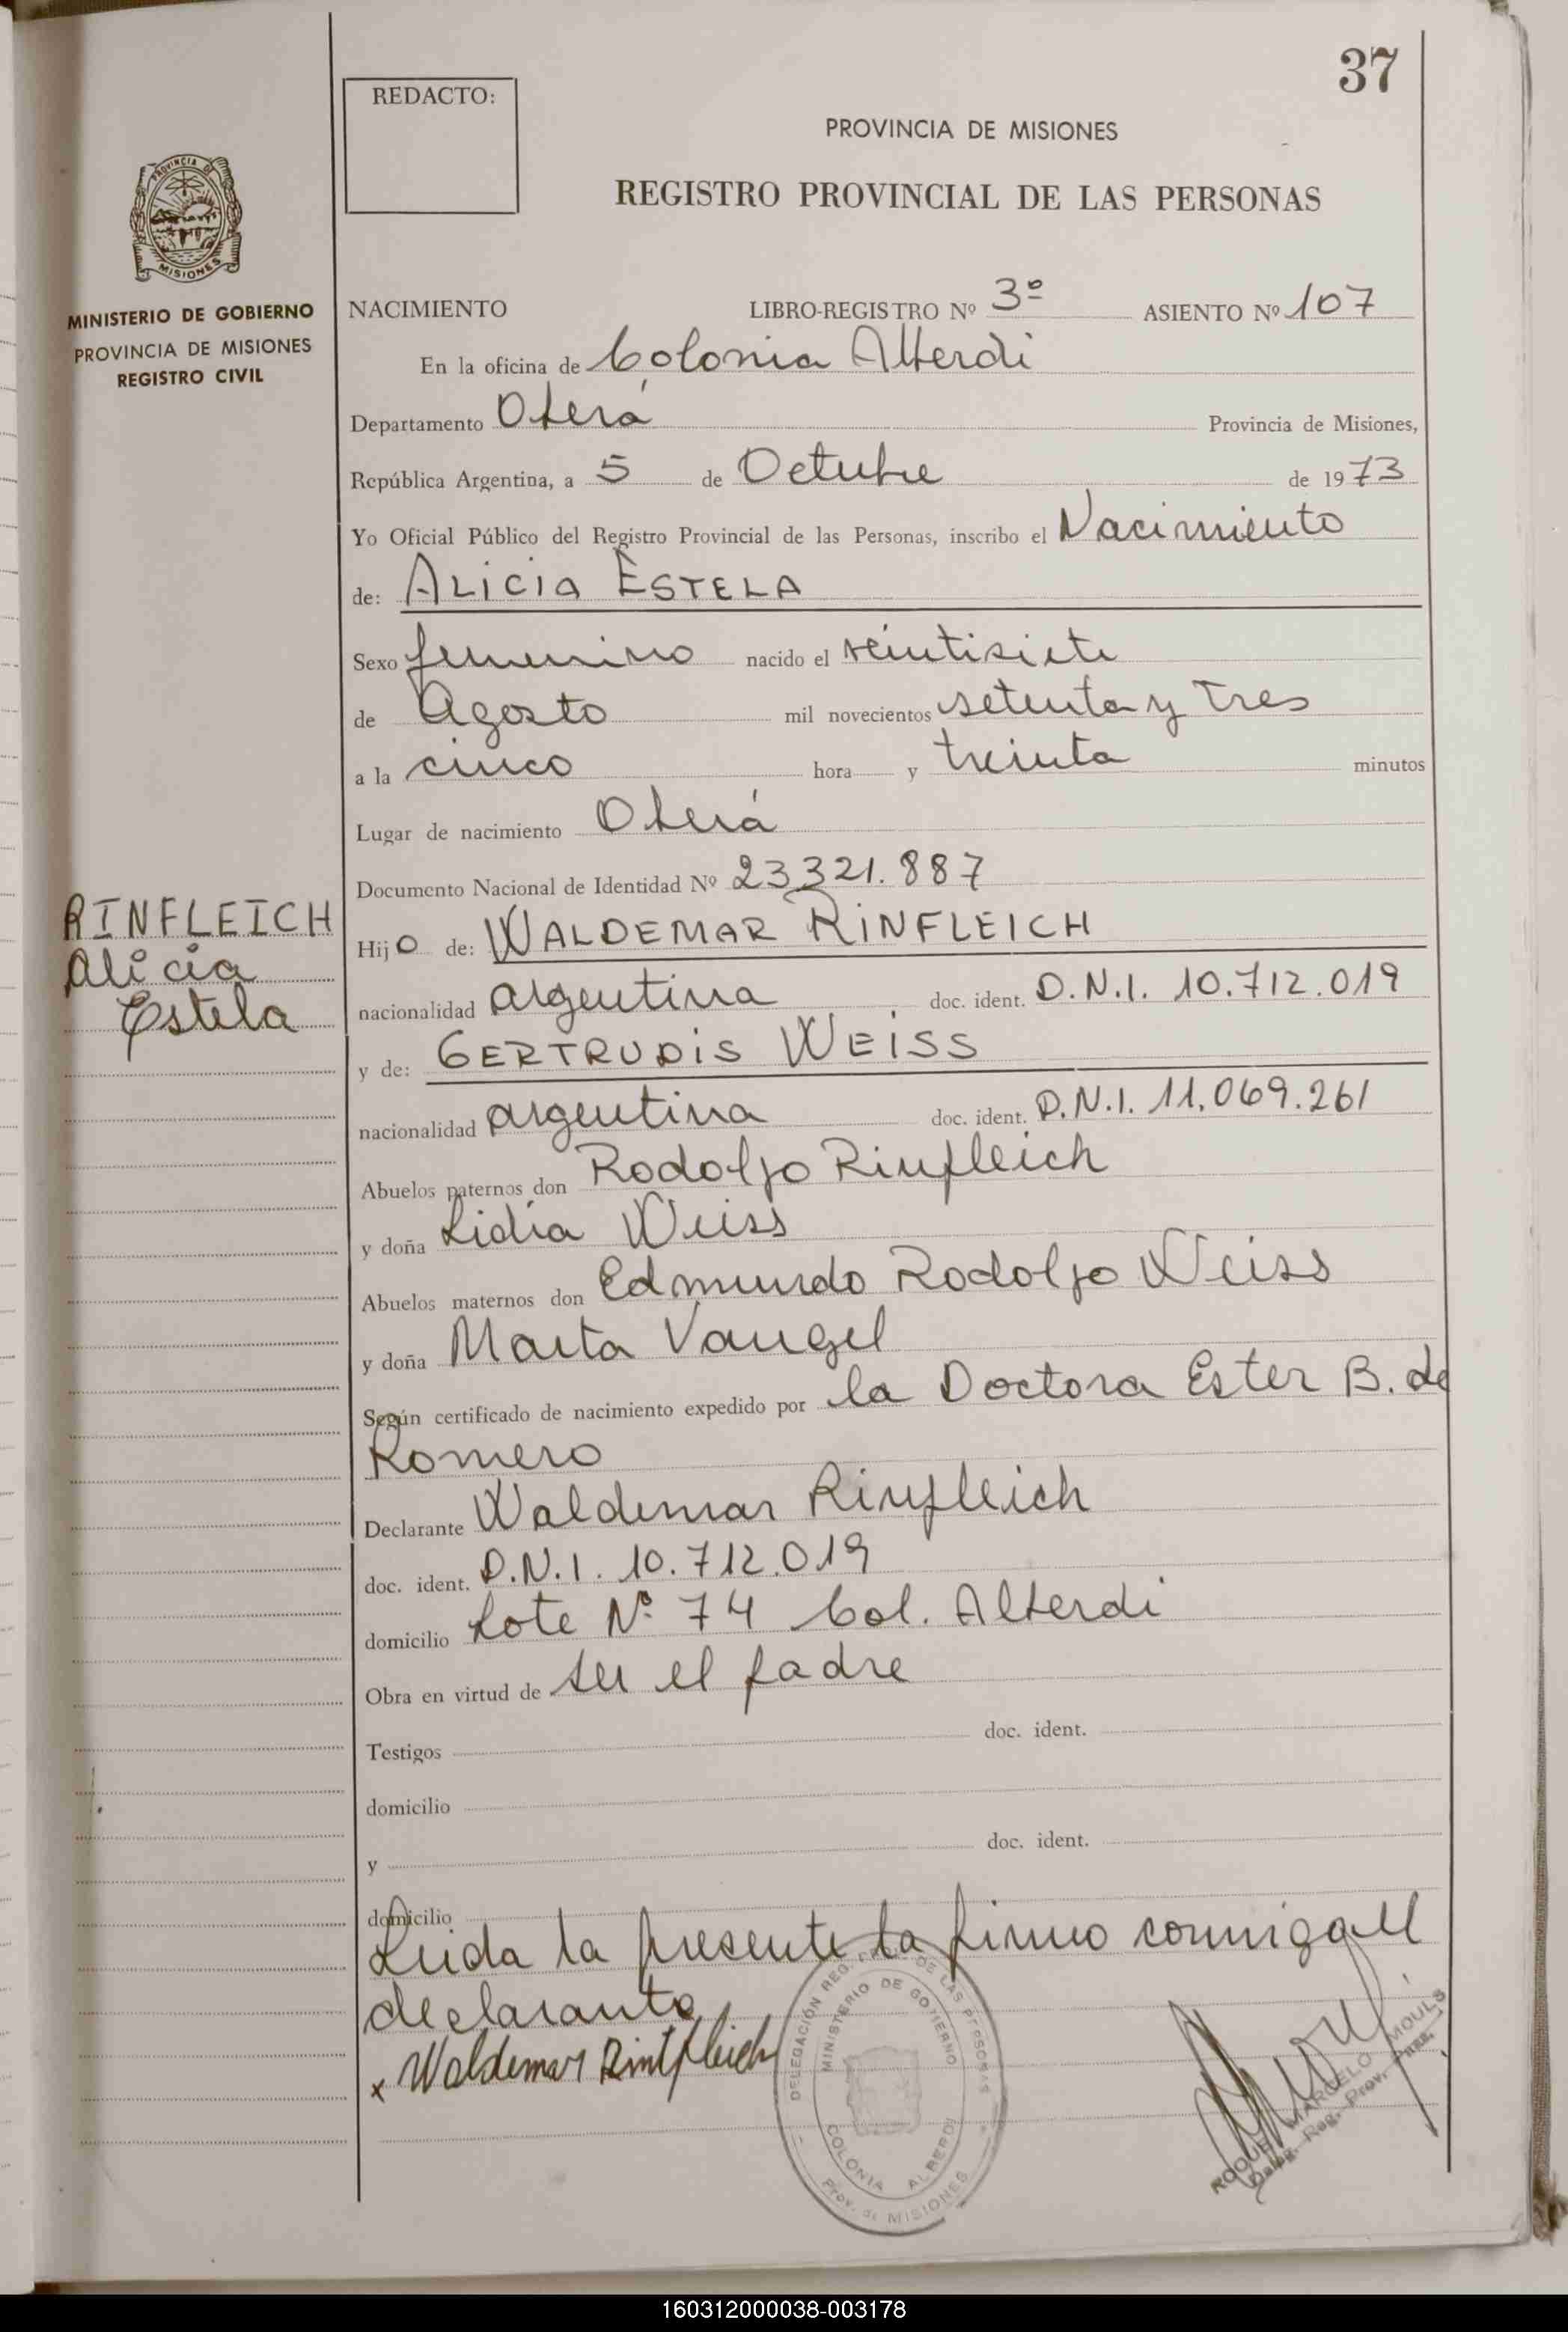 37
REDACTO:
PROVINCIA DE MISIONES
REGISTRO PROVINCIAL DE LAS PERSONAS
PROVINCIA DE
MISIONES
MINISTERIO DE GOBIERNO
PROVINCIA DE MISIONES
REGISTRO CIVIL
NACIMIENTO LIBRO-REGISTRO Nº 3º ASIENTO Nº 107
En la oficina de Colonia Alberdi
Departamento Oberá Provincia de Misiones,
República Argentina, a 5 de Octubre de 1973
Yo Oficial Público del Registro Provincial de las Personas, inscribo el Nacimiento
de: ALICIA ESTELA
Sexo femenino nacido el veintisiete
de Agosto mil novecientos setenta y tres
a la cinco hora y treinta minutos
Lugar de nacimiento Oberá
Documento Nacional de Identidad Nº 23321.887
RINFLEICH
Alicia
Estela
Hijo de: WALDEMAR RINFLEICH
nacionalidad argentina doc. ident. D.N.I. 10.712.019
y de: GERTRUDIS WEISS
nacionalidad argentina doc. ident. D.N.I. 11.069.261
Abuelos paternos don Rodolfo Rinfleich
y doña Lidia Weiss
Abuelos maternos don Edmundo Rodolfo Weiss
y doña Marta Vangel
Según certificado de nacimiento expedido por la Doctora Ester B. de
Romero
Declarante Waldemar Rinfleich
doc. ident. D.N.I. 10.712.019
domicilio Lote Nº 74 Col. Alberdi
Obra en virtud de ser el padre
Testigos doc. ident.
domicilio
y doc. ident.
domicilio
Leida la presente la firmo conmigo el
declarante
x Waldemar Rintfleich
DELEGACIÓN REG. PROV. DE LAS PERSONAS
MINISTERIO DE GOBIERNO
COLONIA ALBERDI
Prov. de MISIONES
ROQUE MARCELO MOULS
Deleg. Reg. Prov.
160312000038-003178